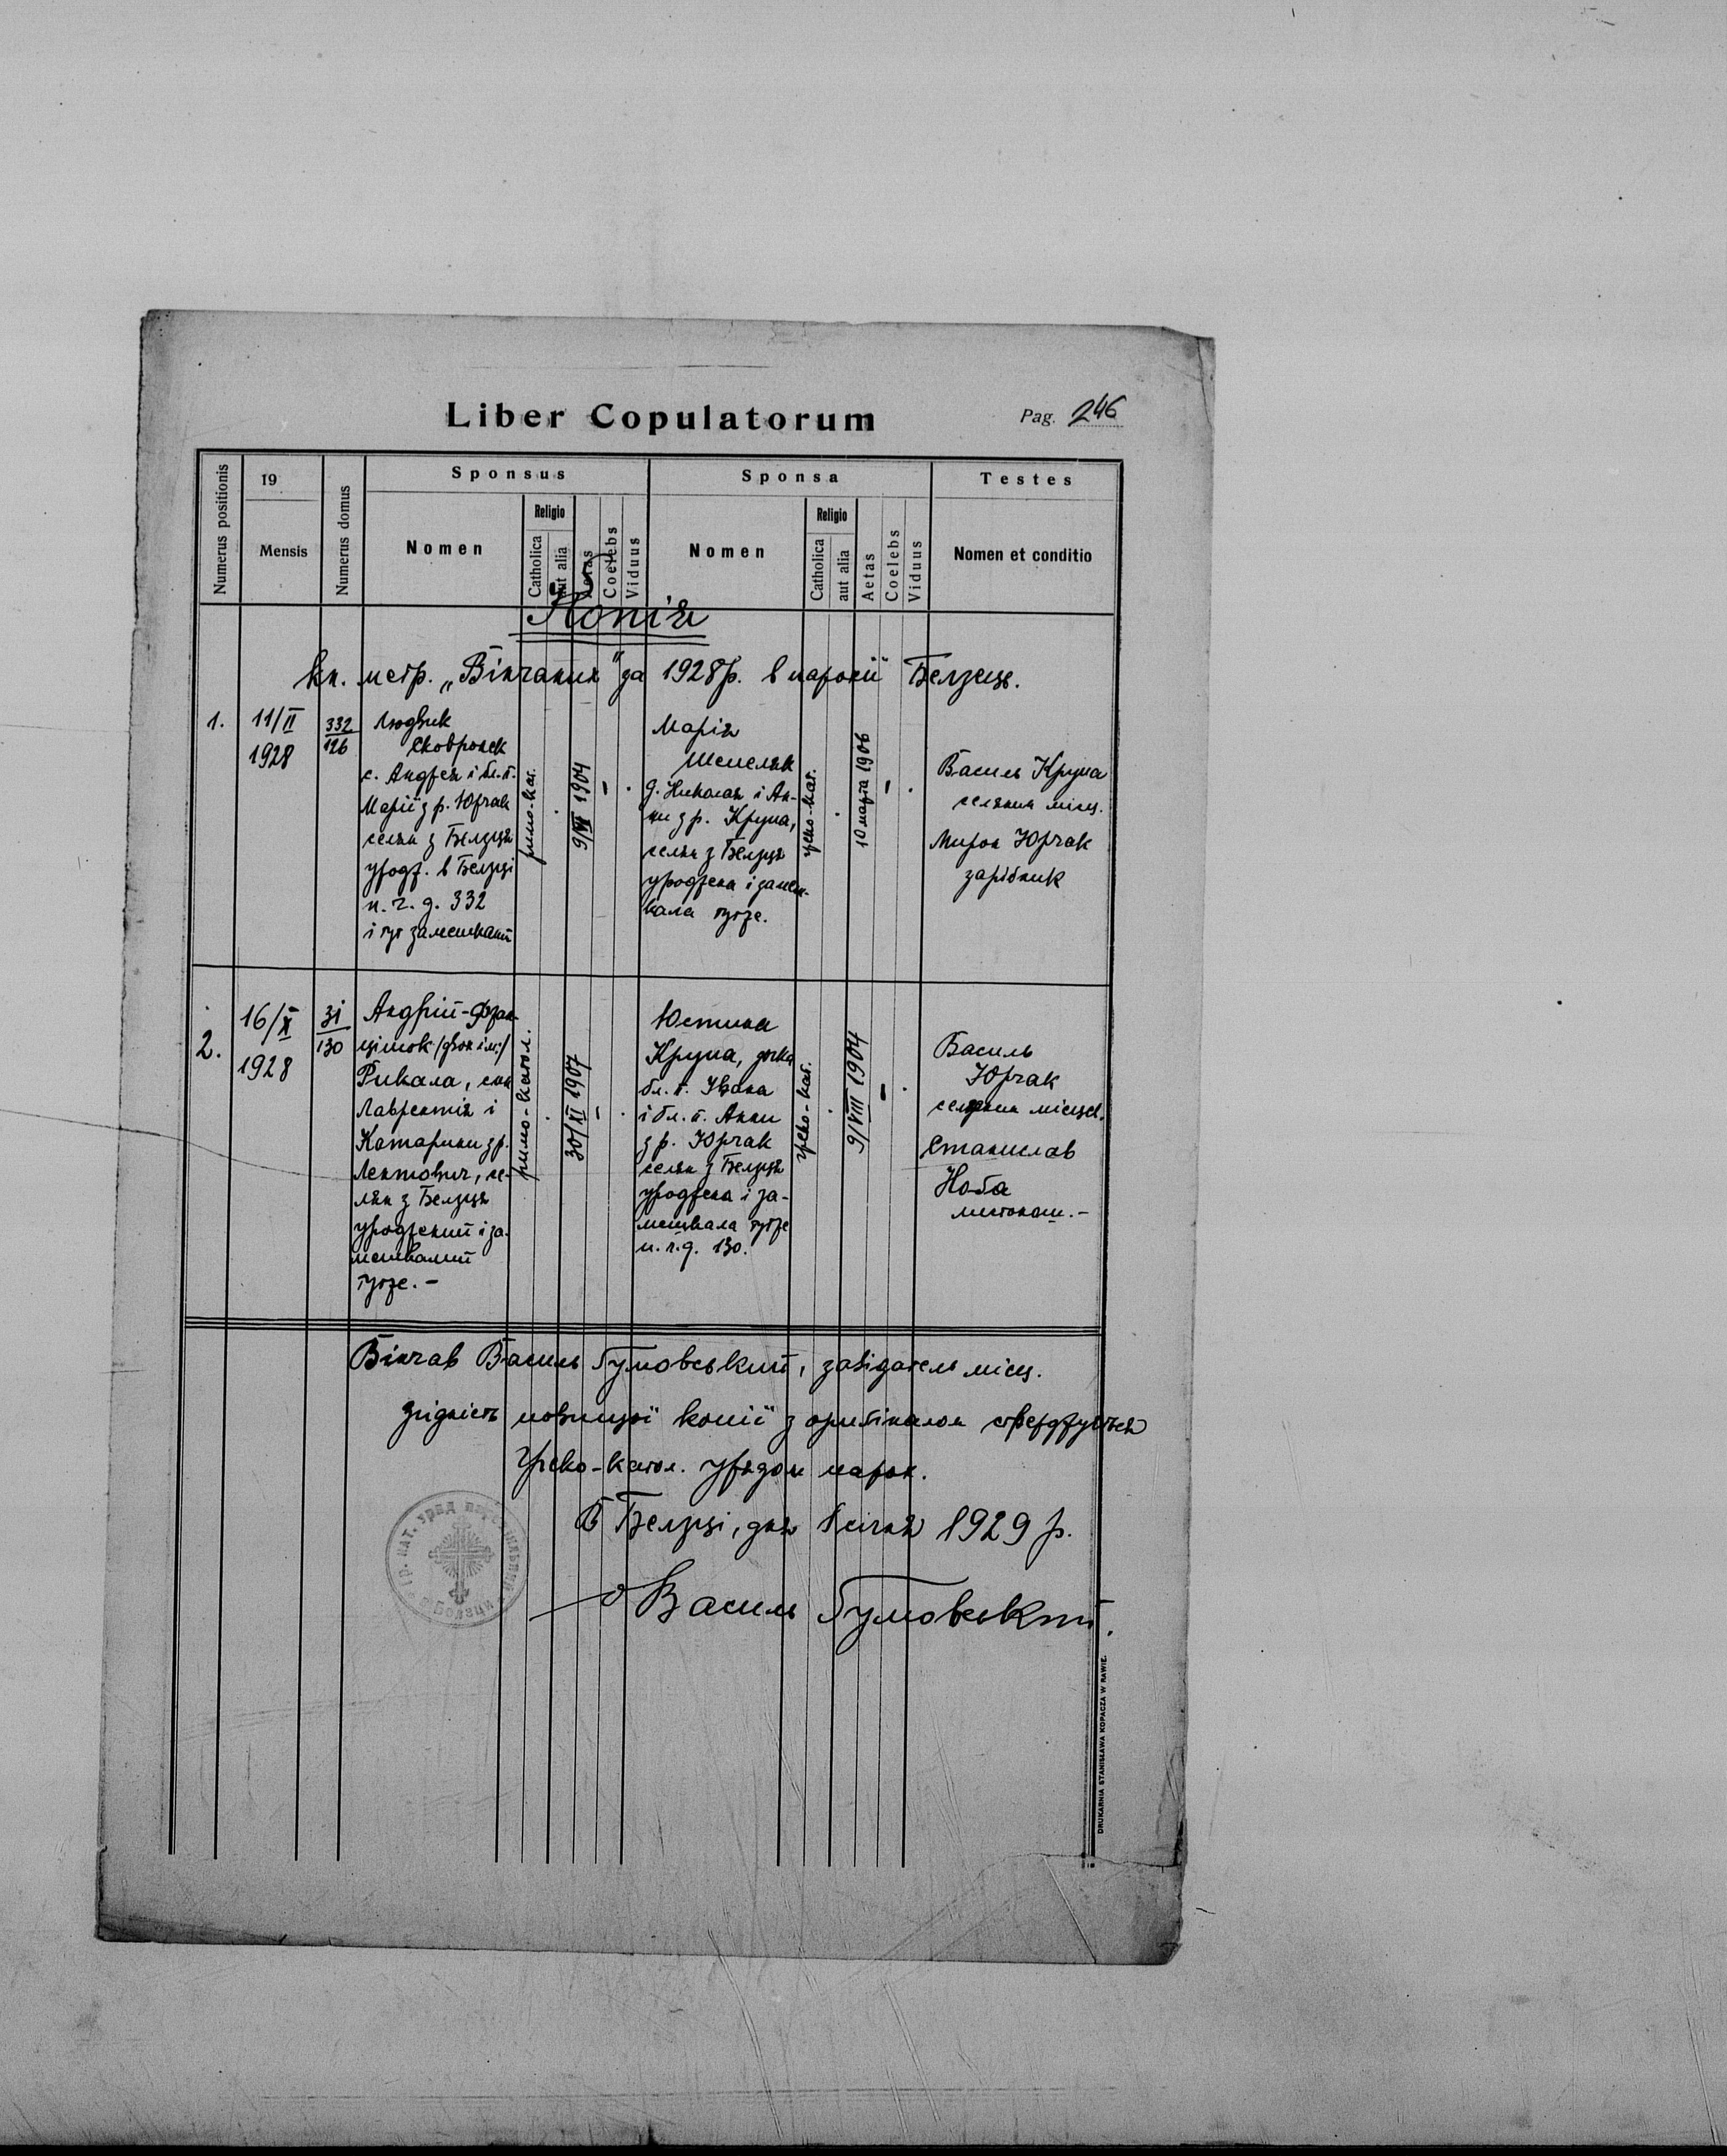 Liber Copulatorum
Pag. 246
Numerus positionis
19
Mensis
Numerus domus
Sponsus
Nomen
Religio
Catholica
aut alia
Aetas
Coelebs
Viduus
Sponsa
Nomen
Religio
Catholica
aut alia
Aetas
Coelebs
Viduus
Testes
Nomen et conditio
Копія
кн. метр. „Вінчаних" за 1928 р. в парохії Белзець.
1.
11/II
1928
332
126
Людвик
Сковронек
с. Андрея і бл. п.
Марії з р. Юрчак
селян з Белзця
урод. в Белзці
п. ч. д. 332
і тут замешканий
римо-кат.
9/VII 1904
Марія
Шешеляк
д. Николая і Ан-
ни з р. Крупа,
селян з Белзця
уроджена і замеш-
кала тутже.
греко-кат.
10 марта 1906
Василь Крупа
селянин місц.
Мирон Юрчак
зарібник
2.
16/X
1928
31
130
Андрій-Фран-
цішок /двох ім:/
Рикала, син
Лаврентія і
Катарини з р.
Лентович, се-
лян з Белзця
уроджений і за-
мешкалий
тутже. –
римо-катол.
30/XI 1907
Юстина
Крупа, дочка
бл. п. Івана
і бл. п. Анни
з р. Юрчак
селян з Белзця
уроджена і за-
мешкала тутже
п. ч. д. 130.
греко-кат.
9/VIII 1904
Василь
Юрчак
селянин місцев.
Станислав
Ноба
листонош. –
Вінчав Василь Гумовський, завідатель місц.
Згідність повищої копії з оригіналом стверджується
Греко-катол. урядом парох.
В Белзці, дня 1 січня 1929 р.
о Василь Гумовський.
DRUKARNIA STANISŁAWA KOPACZA W RAWIE.